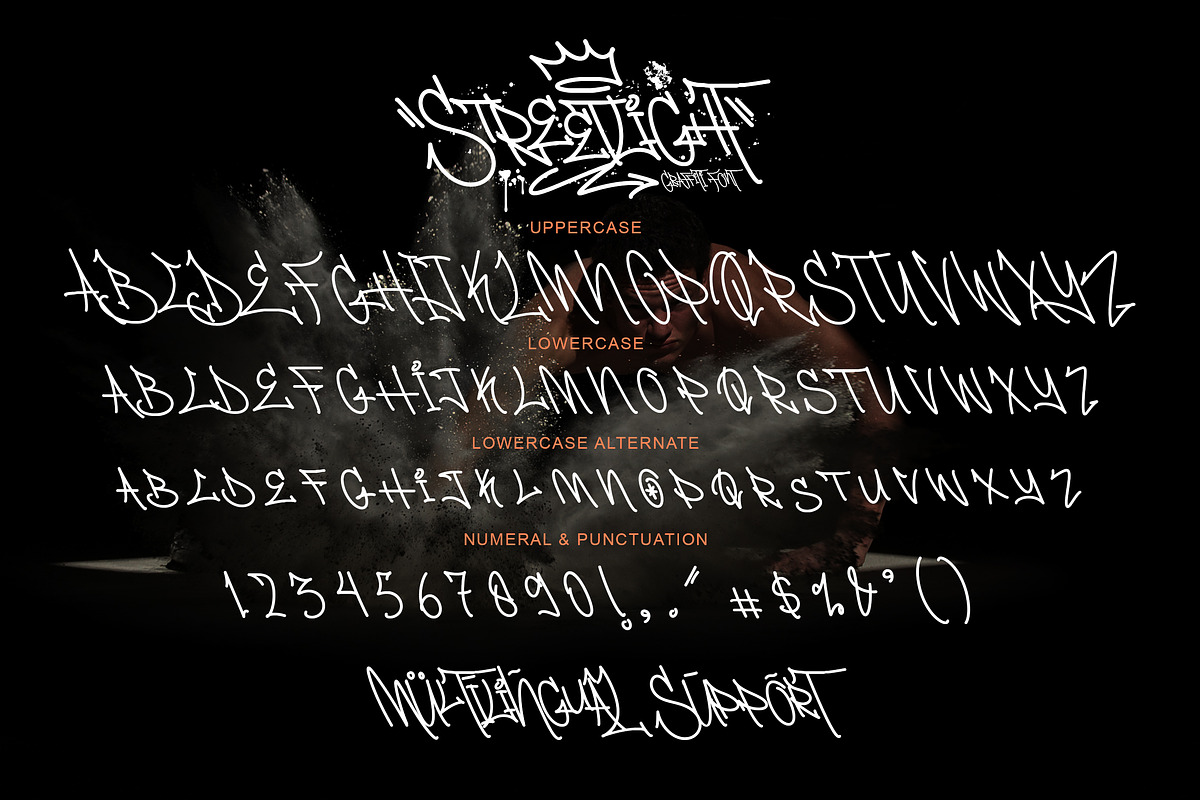 "STREETLIGHT"
GRAFFITI FONT
UPPERCASE
ABCDEFGHIJKLMNOPQRSTUVWXYZ
LOWERCASE
ABCDEFGHiJKLMNOPQRSTUVWXYZ
LOWERCASE ALTERNATE
ABCDEFGHiJKLMNOPQRSTUVWXYZ
NUMERAL & PUNCTUATION
1234567890!,.:" #$%&°()
MÜLTiLiÑGUAL SÚPPÕRT